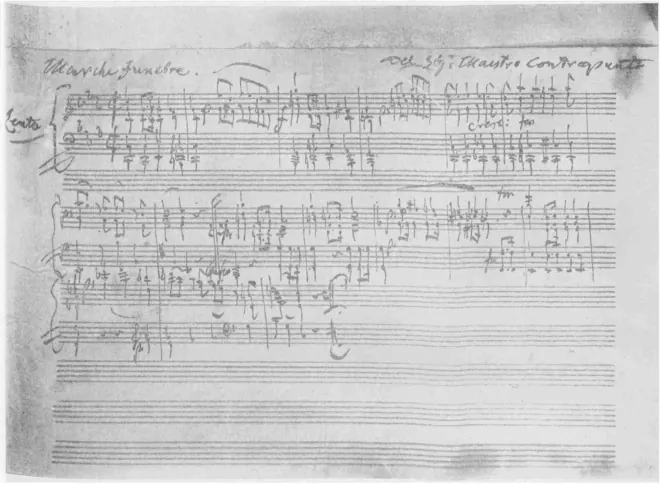 Marche funebre. Del Sig: Maestro Contrapunto
Lento
cresc: